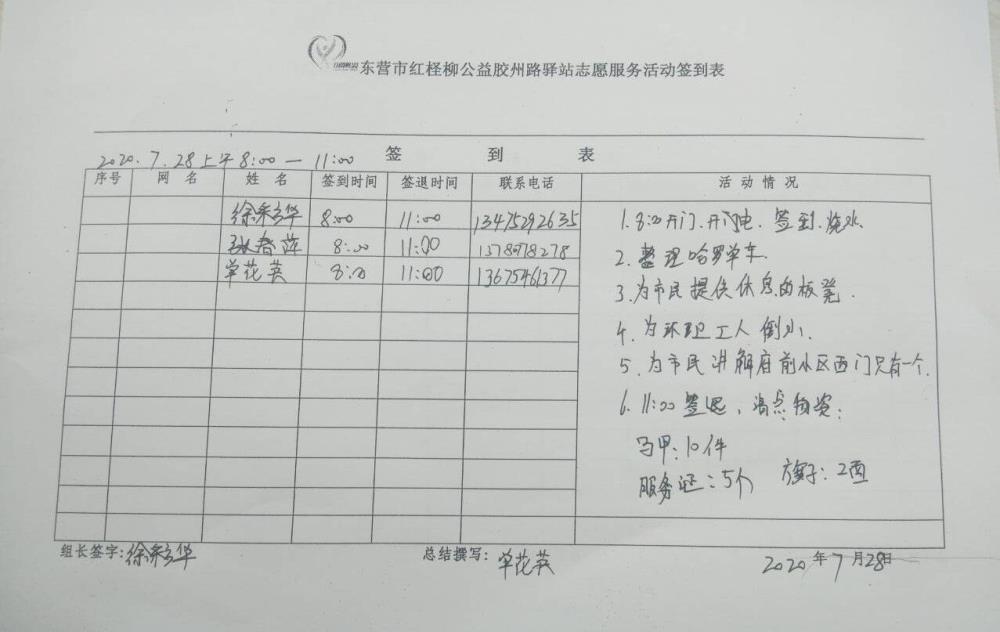 东营市红柽柳公益胶州路驿站志愿服务活动签到表
2020.7.28上午8:00—11:00 签到表
序号 网名 姓名 签到时间 签退时间 联系电话 活动情况
徐秀华 8:00 11:00 13475292635
张春萍 8:00 11:00
单花英 8:00 11:00 13675461377
1.8:00开门.开门电.签到.烧水.
2.整理哈罗单车.
3.为市民提供休息的板凳.
4.为环卫工人倒水.
5.为市民讲解府前小区西门只有一个.
6.11:00签退,清点物资:
马甲:10件
服务证:5个 旗子:2面
组长签字:徐秀华 总结撰写:单花英 2020年7月28日